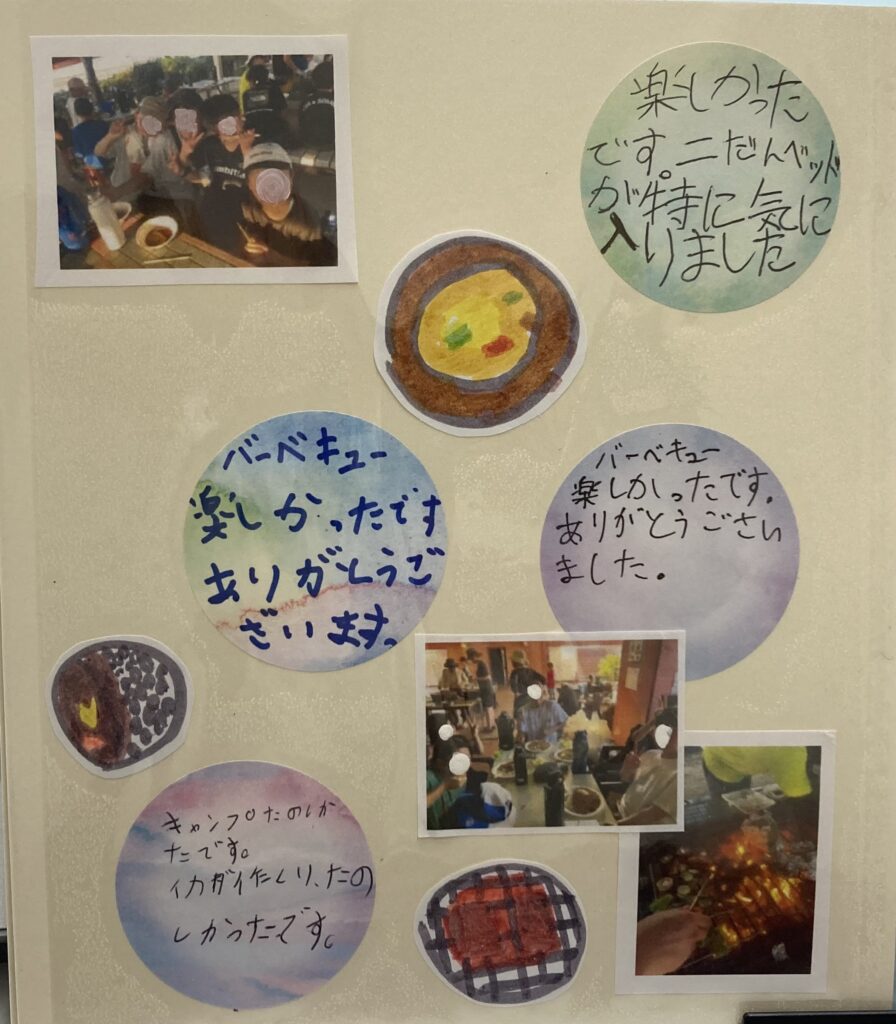 楽しかった
です。二だんベッド
が特に気に
入りました
バーベキュー
楽しかったです
ありがとうご
ざいます。
バーベキュー
楽しかしったです.
ありがとうござい
ました.
キャンプたのしか
たです。
イカダイ作くり、たの
しかったです。